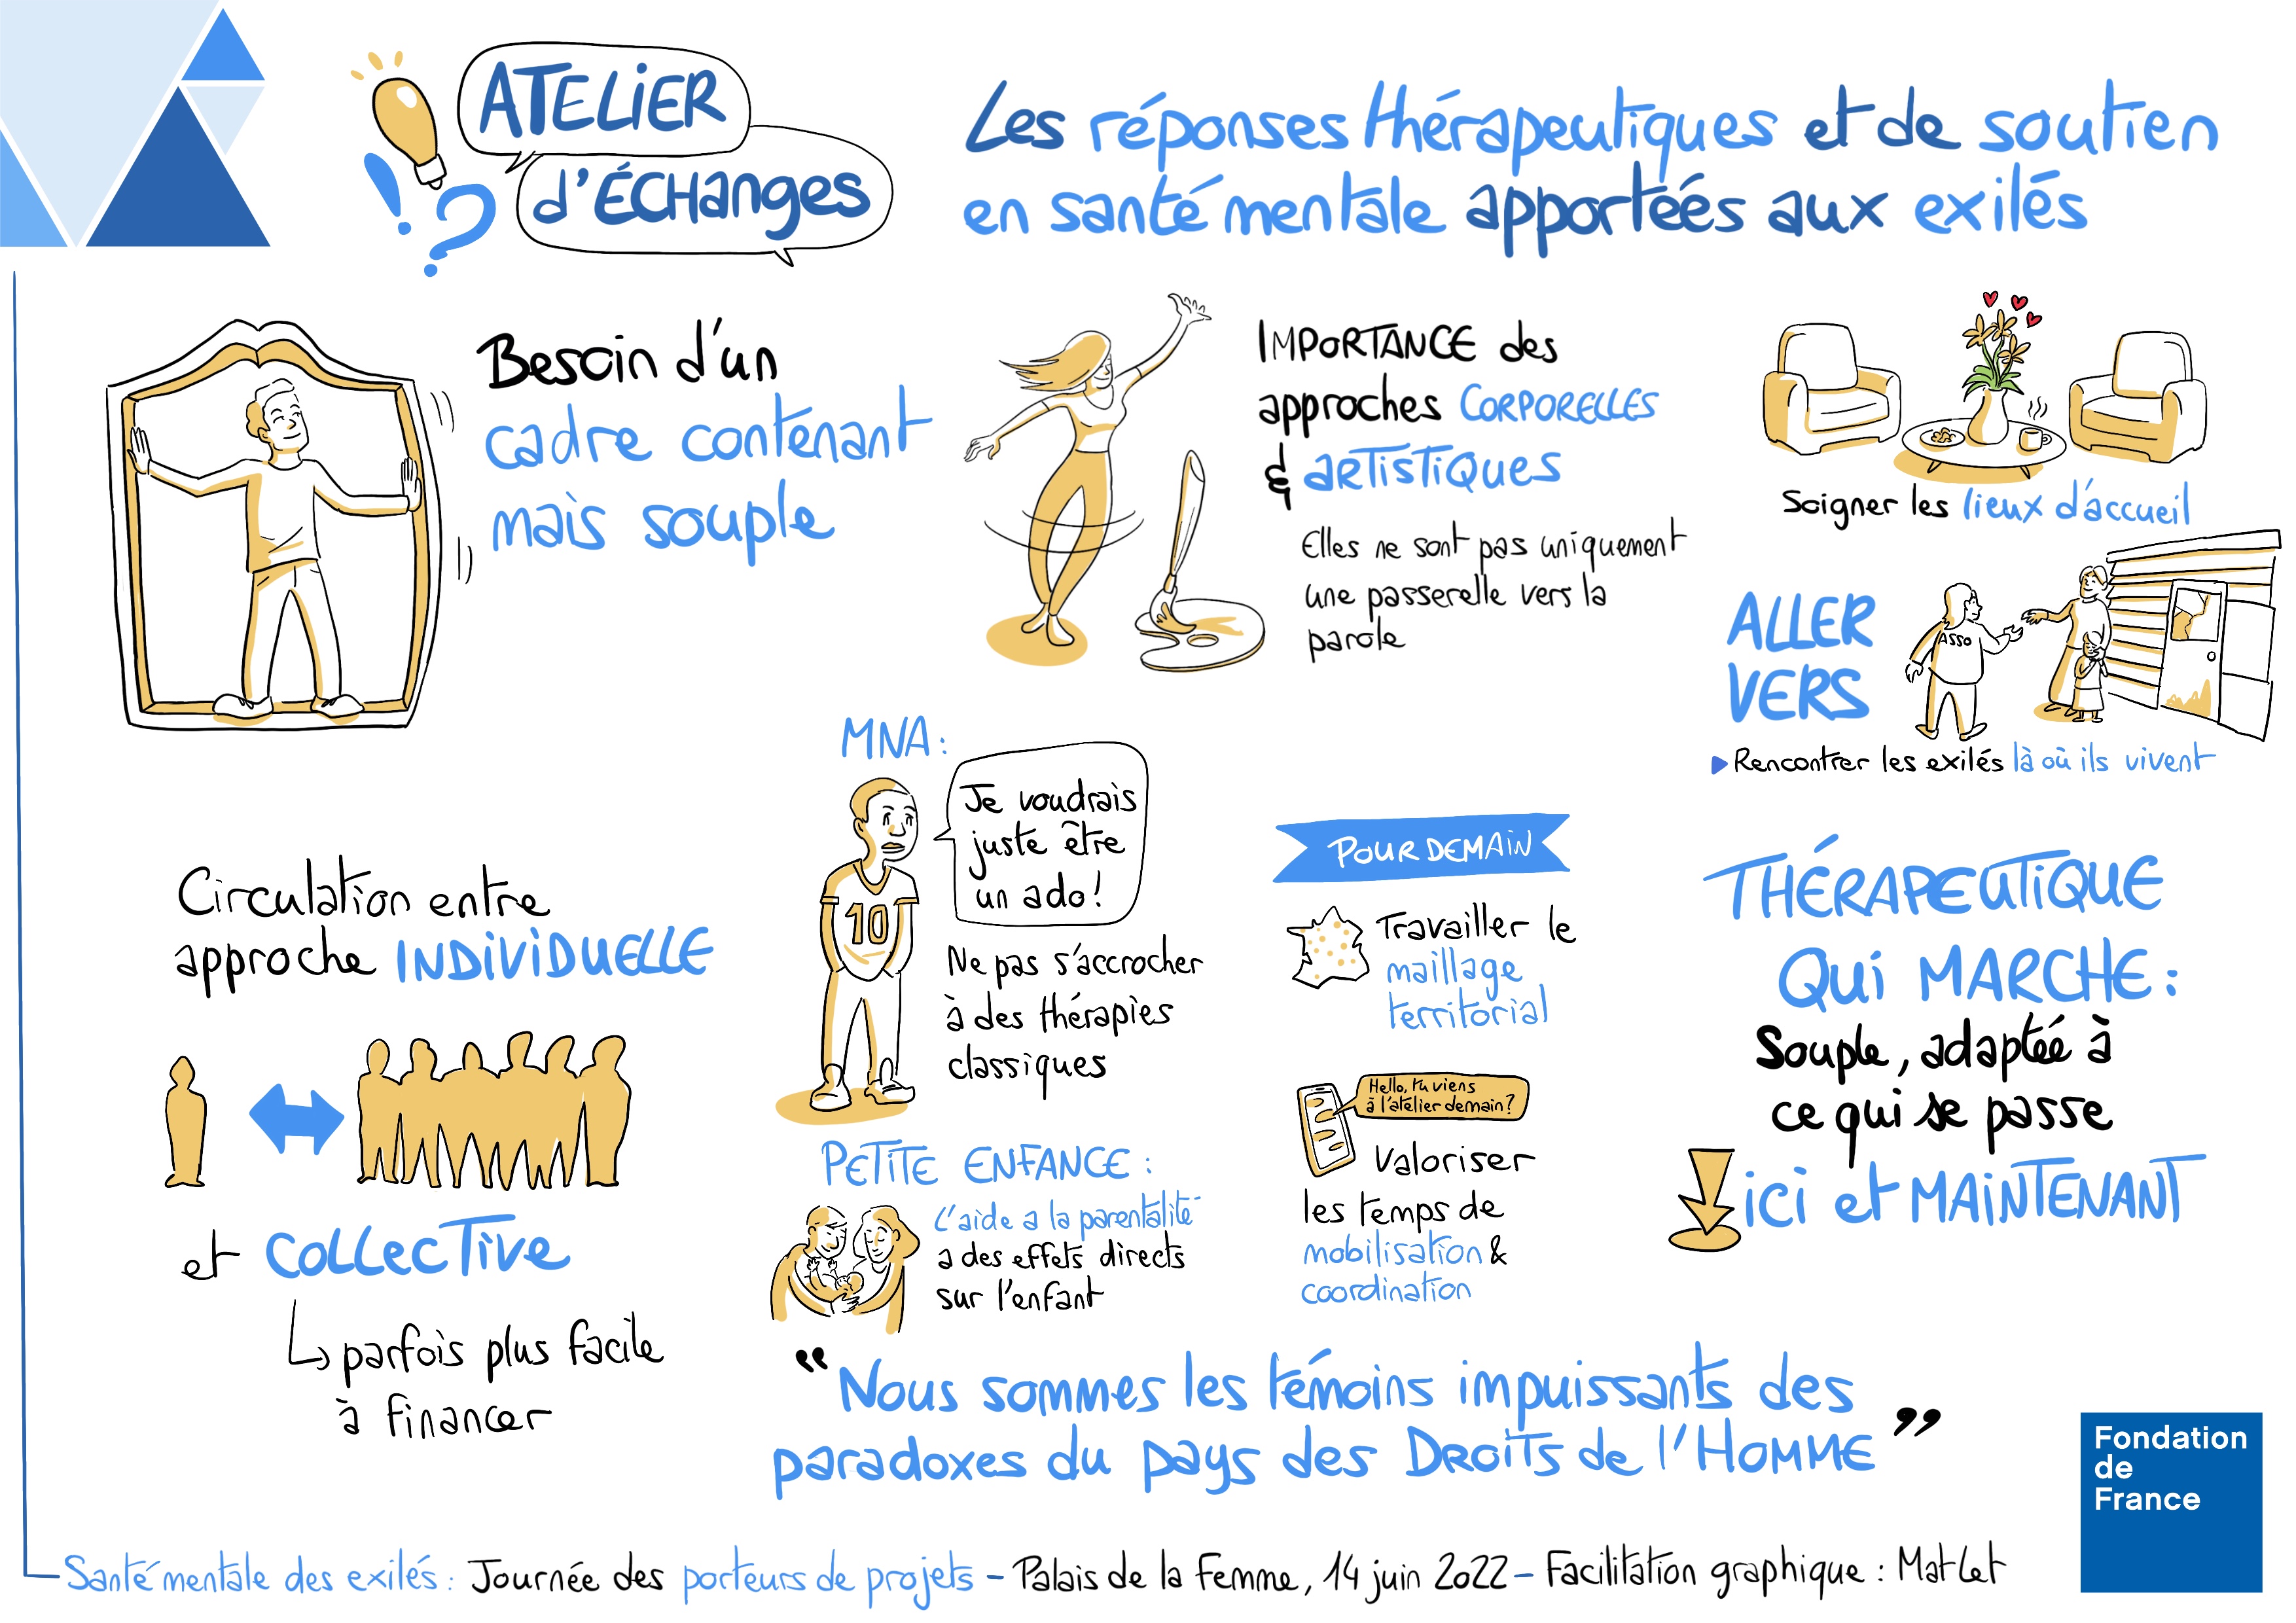 ATELIER
d'ÉCHanges
Les réponses thérapeutiques et de soutien
en santé mentale apportéés aux exilés
Besoin d'un
cadre contenant
mais souple
IMPORTANCE des
approches CORPORELLES
& ARTISTIQUES
Elles ne sont pas uniquement
une passerelle vers la
parole
Soigner les lieux d'accueil
ALLER
VERS
ASSO
Rencontrer les exilés là où ils vivent
MNA:
Je voudrais
juste être
un ado!
10
Ne pas s'accrocher
à des thérapies
classiques
PETITE ENFANCE :
L'aide a la parentalité
a des effets directs
sur l'enfant
Circulation entre
approche INDIVIDUELLE
et COLLECTIVE
parfois plus facile
à financer
POUR DEMAIN
Travailler le
maillage
territorial
Hello, tu viens
à l'atelier demain?
Valoriser
les temps de
mobilisation &
coordination
THÉRAPEUTIQUE
QUI MARCHE :
Souple, adaptéé à
ce qui se passe
ici et MAINTENANT
“Nous sommes les témoins impuissants des
paradoxes du pays des DROITS de l'HOMME”
Fondation
de
France
Santé mentale des exilés : Journée des porteurs de projets – Palais de la Femme, 14 juin 2022 – Facilitation graphique : Mat Let